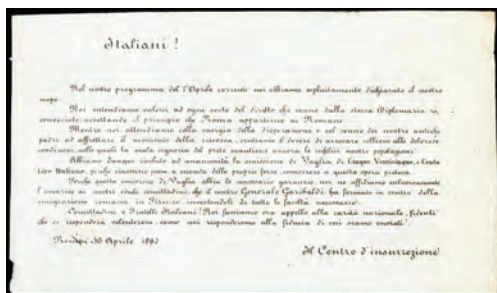 Italiani !
Nel nostro programma del 1.º Aprile corrente noi abbiamo esplicitamente dichiarato il nostro
scopo.
Noi intendiamo valerci ad ogni costo del diritto che emana dalla stessa Diplomazia
conosciuto, accettando il principio che Roma appartiene ai Romani.
Mentre noi attendiamo colla energia della disperazione e col senno dei nostri antichi
padri ad affrettare il momento della riscossa, sentiamo il dovere di arrecare sollievo alle dolorose
condizioni, nelle quali la mala signoria del prete mantiene ancora le infelici nostre popolazioni.
Abbiamo dunque risoluto ad unanimità la emissione di Vaglia di Cinque, Venticinque, e Cento
Lire Italiane, perchè ciascuno possa a misura delle proprie forze, concorrere a questa opera pietosa.
Perchè questa emissione di Vaglia abbia le necessarie garanzie, noi ne affidiamo esclusivamente
l'incarico ai nostri concittadini, che il nostro Generale Garibaldi ha formato in centro della
emigrazione romana in Firenze investendoli di tutte le facoltà necessarie.
Concittadini e Fratelli Italiani! Noi facciamo ora appello alla carità nazionale, fidenti
che ci risponderà volenterosa, come noi risponderemo alla fiducia di cui siamo onorati.
Aprile
Il Centro d'insurrezione